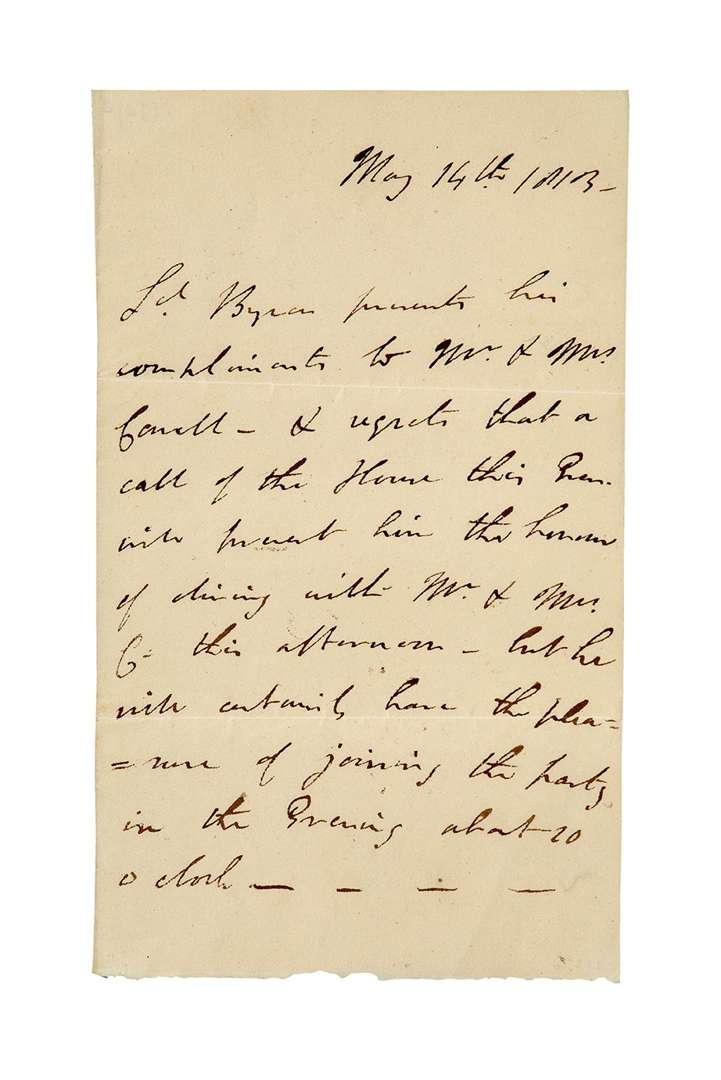 May 14th. 1813 –
Ld. Byron presents his
compliments to Mr. & Mrs.
– & regrets that a
call of the House this Even.
will prevent him the honour
of dining with Mr. & Mrs.
C= this afternoon – but he
will certainly have the plea=
=sure of joining the party
in the Evening about 10
o clock — – – –